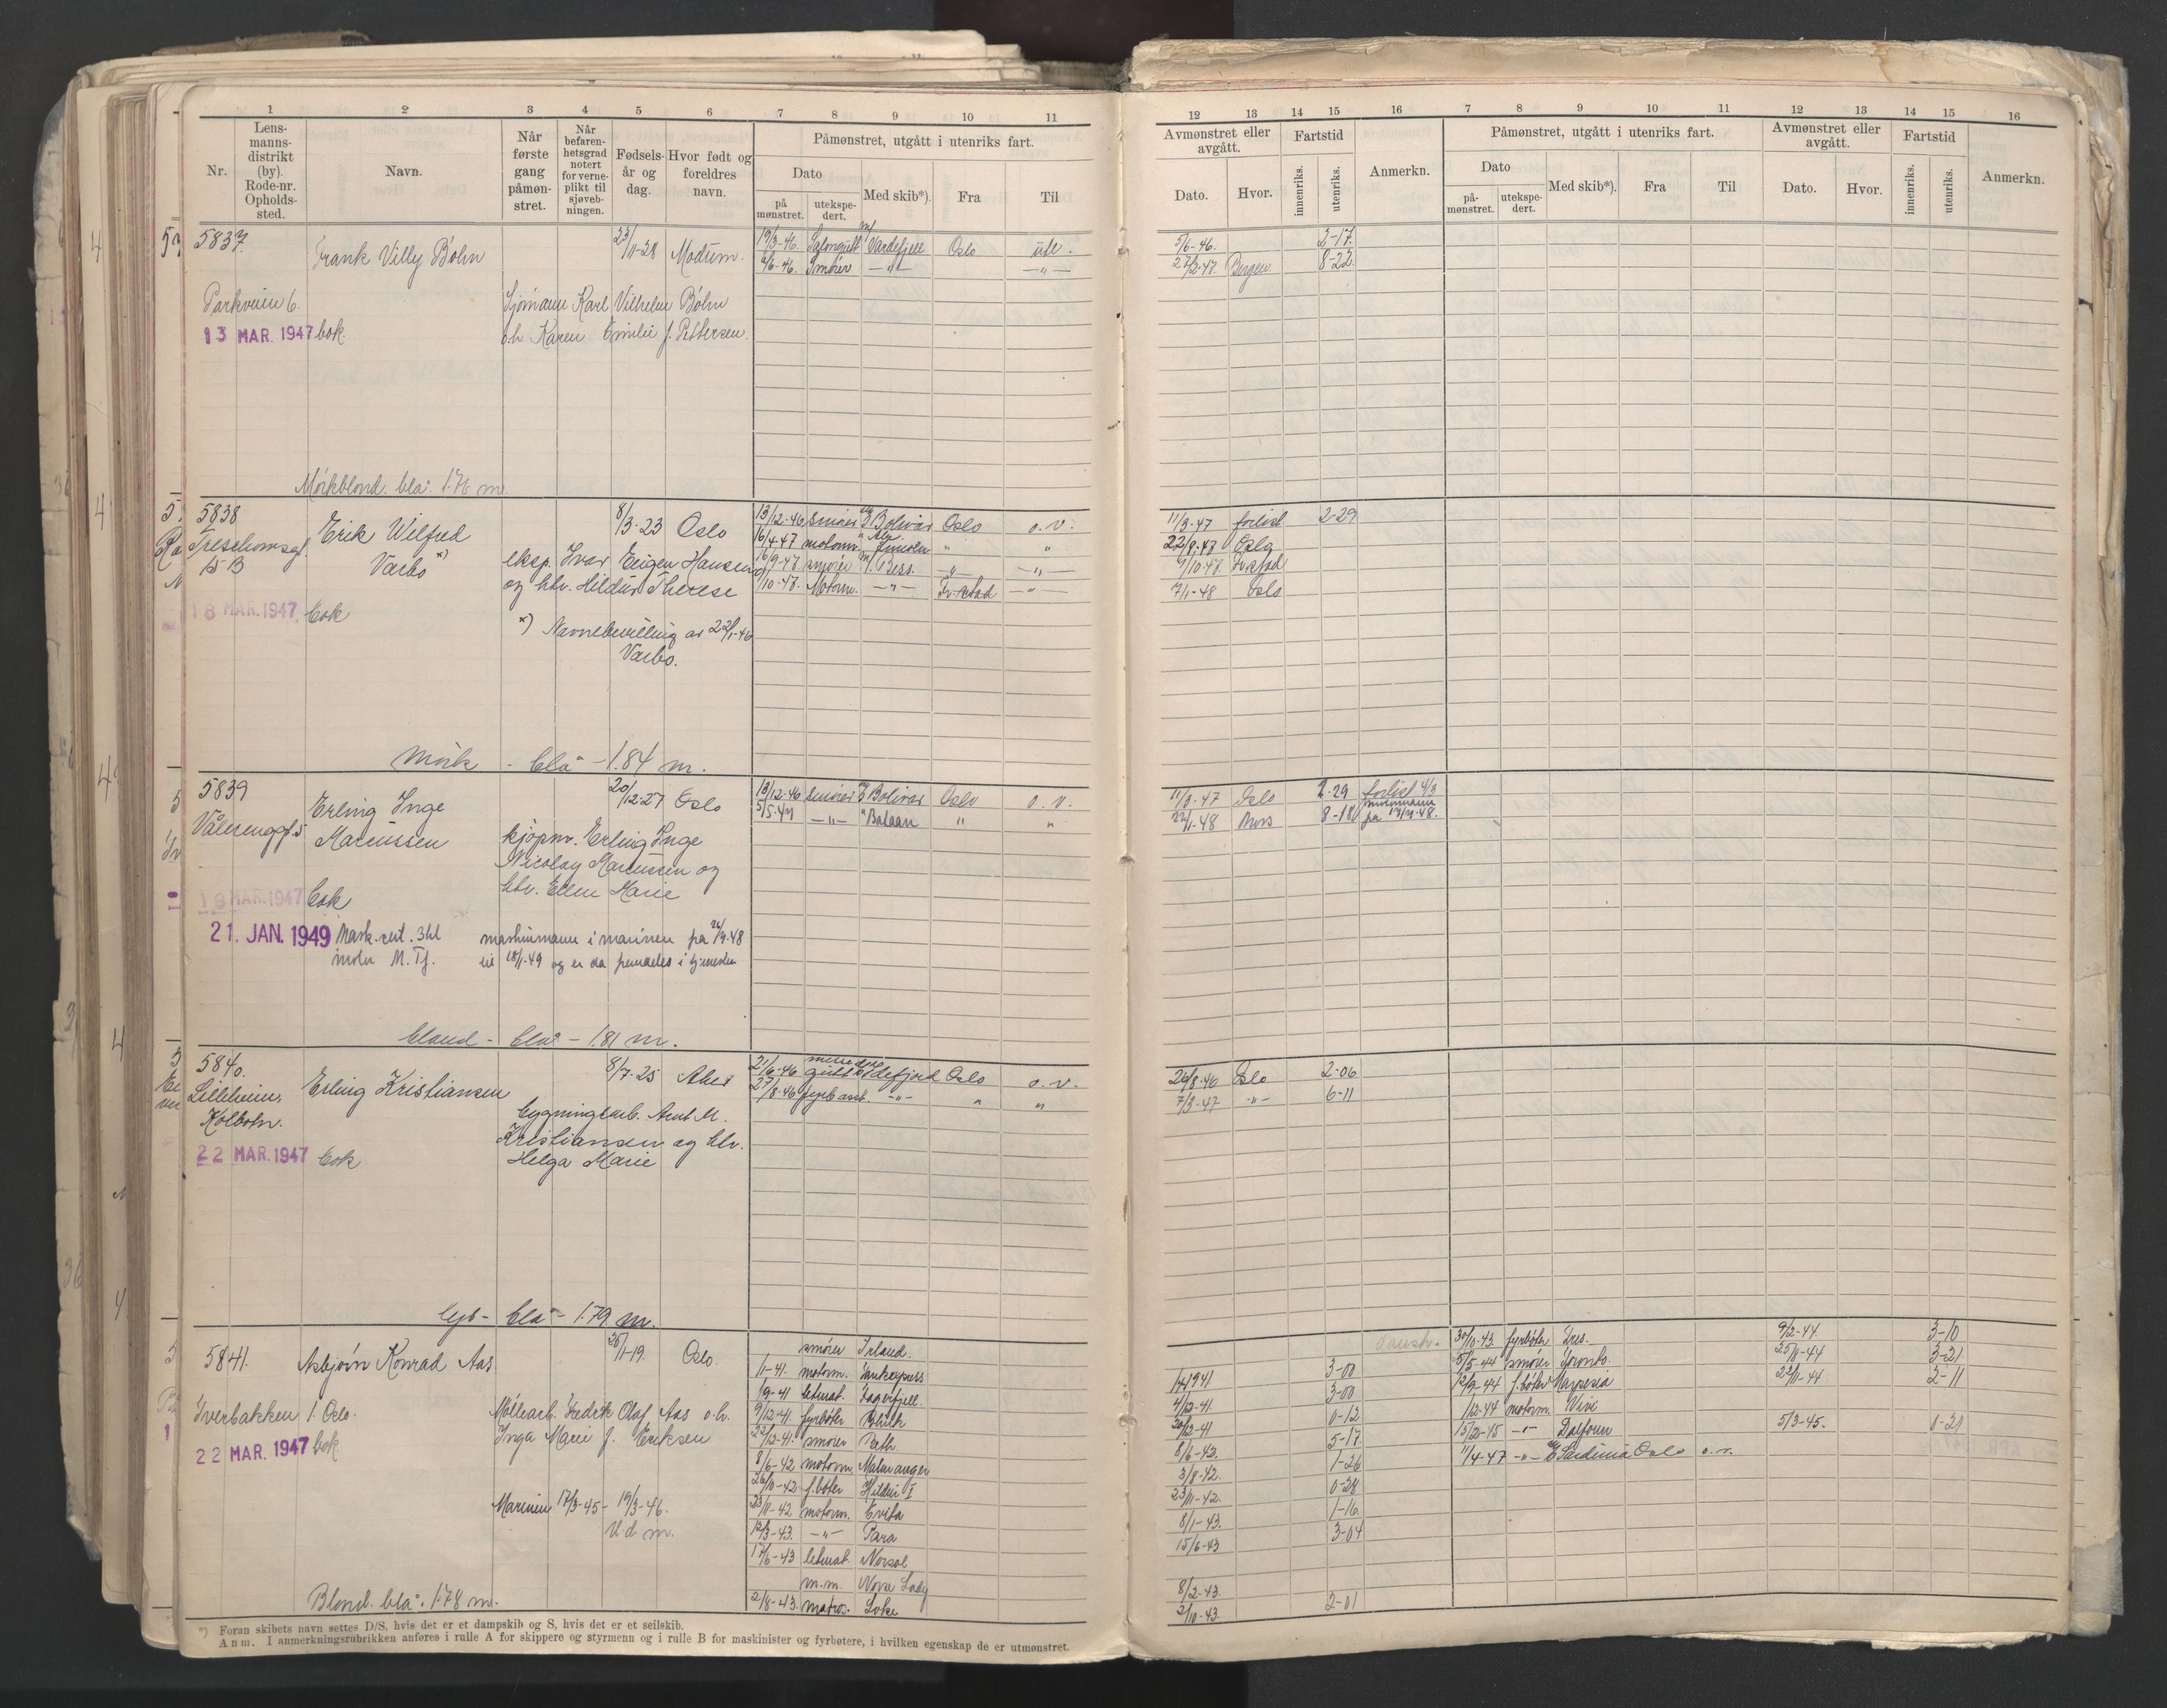 1 2 3 4 5 6 7 8 9 10 11
Nr.
Lens-
manns-
distrikt
(by).
Rode-nr.
Opholds-
sted.
Navn.
Når
første
gang
påmøn-
stret.
Når
befaren-
hetsgrad
notert
for verne-
plikt til
sjøveb-
ningen.
Fødsels-
år og
dag.
Hvor født og
foreldres
navn.
Påmønstret, utgått i utenriks fart.
Dato
på
mønstret.
utekspe-
dert.
Med skib*).
Fra
Til
12 13 14 15 16 7 8 9 10 11 12 13 14 15 16
Avmønstret eller
avgått.
Dato.
Hvor.
Fartstid
innenriks.
utenriks.
Anmerkn.
Påmønstret, utgått i utenriks fart.
Dato
på-
mønstret.
utekspe-
dert.
Med skib*).
Fra
Til
Avmønstret eller
avgått.
Dato.
Hvor.
Fartstid
innenriks.
utenriks.
Anmerkn.
5837. Frank Villy Bøhn 23/11-28 Modum. 19/3-46. Salongutt m/ Vardefjell Oslo utl. 5/6-46. 2-17.
6/6-46. Smører —"— —"— 27/2-47. Bergen 8-22.
Parkveien 6. Sjømann Karl Vilhelm Bøhn
13 MAR. 1947 bok. o.h. Karen Emilie f. Pettersen.
Mørkblond. blå. 1.76 m.
5838 Erik Wilfred 8/3-23 Oslo 13/12-46 smører Bolivar Oslo o.v. 11/3-47 forlist 2-29
Treschowsgt. Varbo *) 16/4-47 motorm. Lincoln " " 22/8-47 Oslo
15 B eksp. Ivar Eugen Hansen 16/9-47 smører m/ Bess. —"— —"— 9/10-47
og htr. Hildur Therese 9/10-47. Motorm. —"— Fr.stad —"— 7/1-48 Oslo
18 MAR. 1947. bok
*) Navnebevilling av 22/1-46
Varbo.
Mørk - blå - 1.84 m.
5839 Erling Inge 20/12-27 Oslo 13/12-46 smører Bolivar Oslo o.v. 11/3-47 Oslo 2-29 forlist 4/3
Vålerenggt. 5 Marcussen 5/5-47 —"— " Balaan " " 22/1-48 Mors 8-18
kjøpm. Erling Inge
Nicolay Marcussen og
htr. Ellen Marie
19 MAR. 1947 bok
21. JAN. 1949 Mask.sert. 3kl maskinmann i marinen fra 26/9-48
motor M. Tj. til 18/1-49 og er da fremdeles i tjenesten
blond - blå - 1.81 m.
5840. Erling Kristiansen 8/7-25 Aker 21/6-46 gutt Idefjord Oslo o.v. 26/8-46 Oslo 2-06
Lilleheim, 27/8-46 fyrb.asst. -"- " " 7/3-47 -"- 6-11
Kolbotn. bygningsarb. Arnt M.
Kristiansen og htr.
Helga Marie
22 MAR. 1947 bok
lys - blå - 1.79 m.
5841. Asbjørn Konrad Aas 26/1-19. Oslo. smører Irland. 30/10-43 fyrbøter 9/2-44. 3-10
1/1-41. motorm. 14/4 41 3-00 5/5-44 smører Toronto. 25/8-44 3-21
Iverbakken 1. Oslo. 19/9-41 letmat. Dagerfjell. 4/12-41 3-00 12/9-44 f.bøter 22/11-44 2-11
Møllearb. Fredrik Olaf Aas o.h. 9/12-41. fyrbøter 20/12-41 0-12 1/12-44 motorm. Vivi
Inga Marie f. Eriksen 22/12-41. smører 8/6-42. 5-17 15/2-45 -"- Dalfonn 5/3-45. 0-21
22 MAR. 1947 bok. 8/6-42 motorm. Malmanger 3/8-42. 1-26 11/4-47 -"- Sardinia Oslo o.v.
26/10-42 f.bøter Hildur I 23/11-42. 0-28
Marinen 17/3-45 - 19/3-46. 23/11-42 motorm. Evita 8/1-43. 1-16
U d m. 12/3-43. -"- Para 15/6-43 3-04
17/6-43 letmat Norsol
m.m. Nova Lady 8/2-43.
Blond. blå. 1.78 m. 2/8-43. matros. Loke 2/10-43. 2-01
*) Foran skibets navn settes D/S, hvis det er et dampskib og S, hvis det er et seilskib.
Anm. I anmerkningsrubrikken anføres i rulle A for skippere og styrmenn og i rulle B for maskinister og fyrbøtere, i hvilken egenskap de er utmønstret.